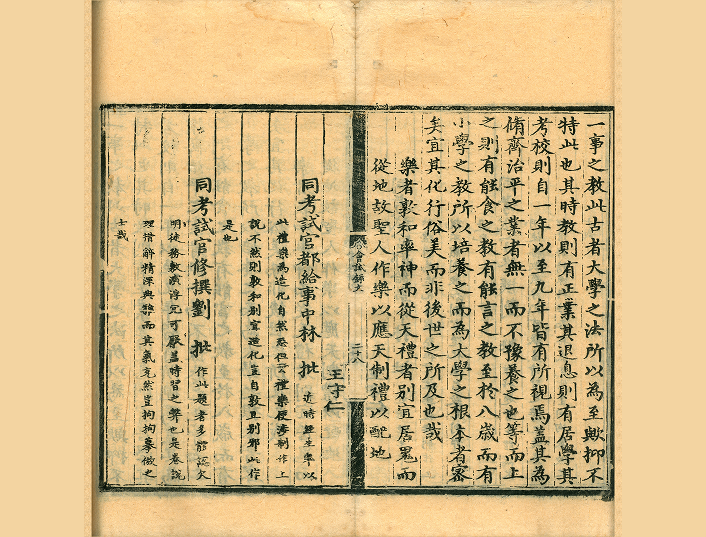 一事之教此古者大學之法所以為至歟抑不
特此也其時教則有正業其退息則有居學其
考校則自一年以至九年皆有所視焉蓋其為
脩齊治平之業者無一而不豫養之也等而上
之則有能食之教有能言之教至於八歲而有
小學之教所以培養之而為大學之根本者密
矣宜其化行俗美而非後世之所及也哉
樂者敦和率神而從天禮者別宜居鬼而
從地故聖人作樂以應天制禮以配地
會試錄文
二十八
王守仁
同考試官都給事中林 批 近時經生率以
此禮樂為造化自然悉但云禮樂便涉制作上
說不然則敦和別宜造化豈自敦且別邪此作
是也
同考試官修撰劉 批 作此題者多體認欠
明徒務敷演浮冗可厭蓋時習之弊也是卷說
理措解精深典雅而其氣充然豈拘拘摹倣之
士哉